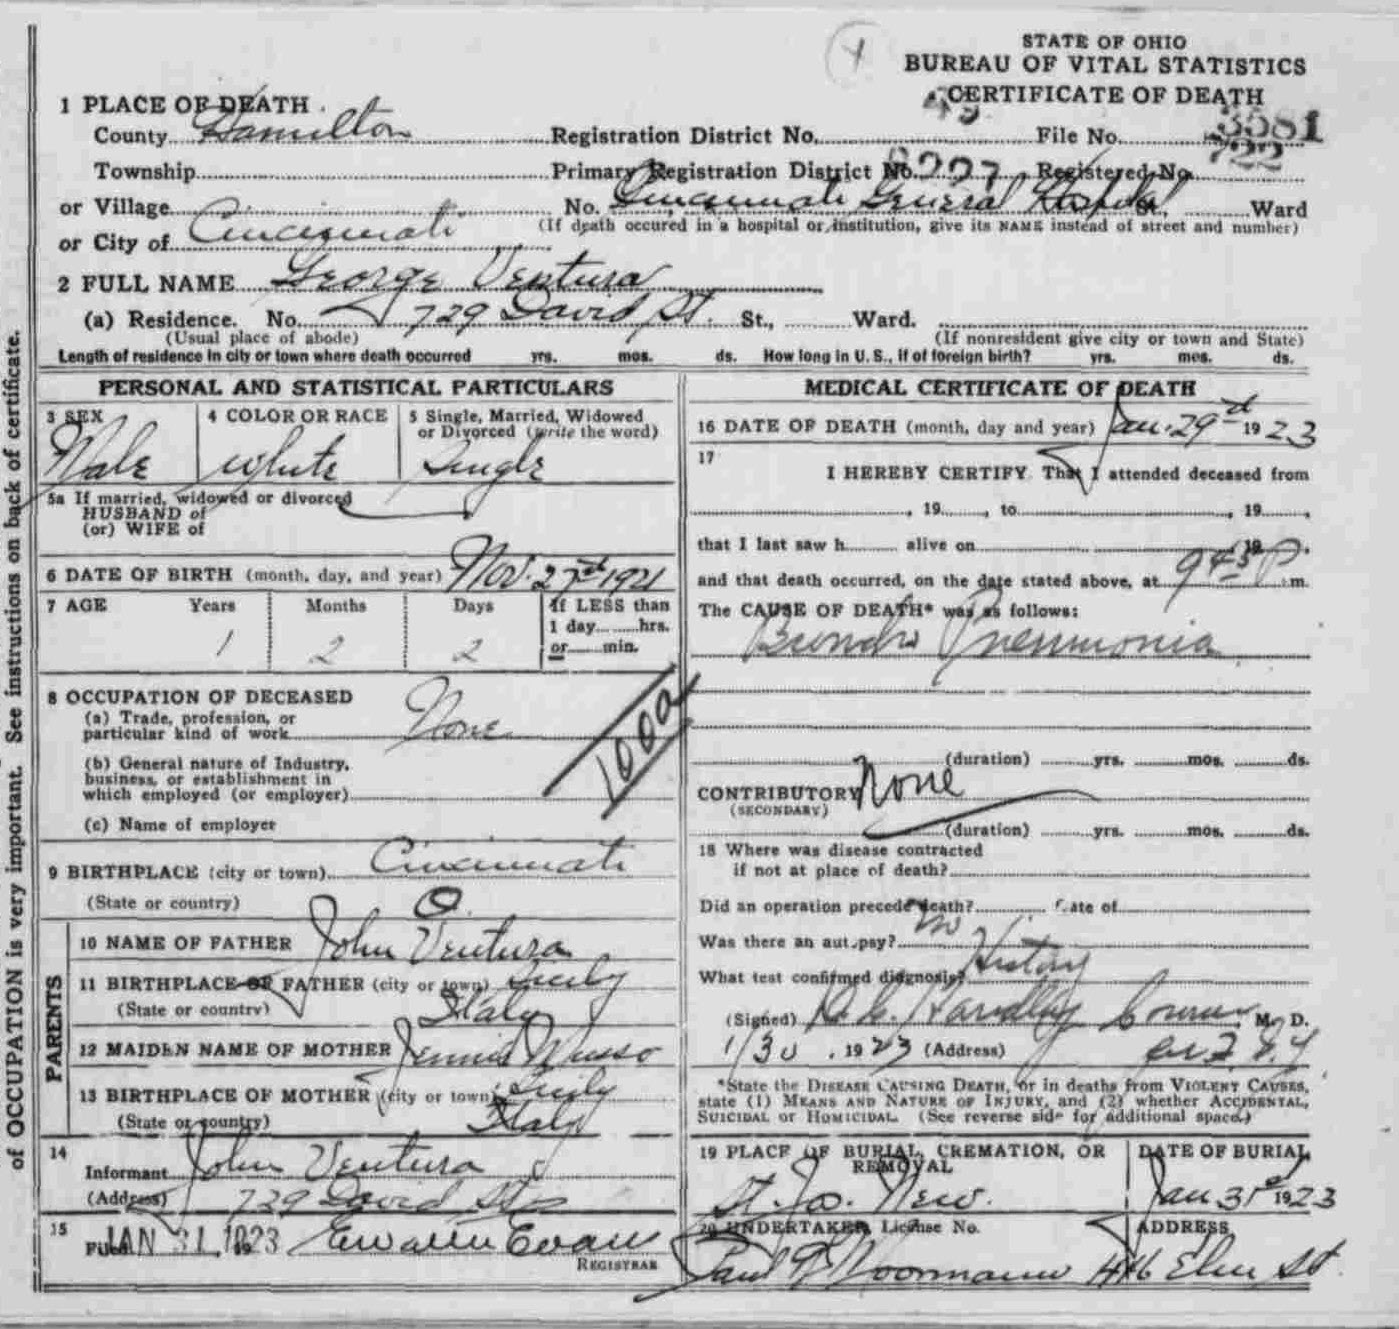 STATE OF OHIO
BUREAU OF VITAL STATISTICS
CERTIFICATE OF DEATH
1 PLACE OF DEATH
County Hamilton Registration District No. 49 File No. 3581
Township Primary Registration District No. 8227 Registered No. 722
or Village No. Cincinnati General Hospital St., Ward
or City of Cincinnati (If death occured in a hospital or institution, give its NAME instead of street and number)
2 FULL NAME George Ventura
(a) Residence. No. 729 David St. St., Ward.
(Usual place of abode) (If nonresident give city or town and State)
Length of residence in city or town where death occurred yrs. mos. ds. How long in U. S., if of foreign birth? yrs. mos. ds.
of OCCUPATION is very important. See instructions on back of certificate.
PERSONAL AND STATISTICAL PARTICULARS
3 SEX Male
4 COLOR OR RACE White
5 Single, Married, Widowed
or Divorced (write the word)
Single
5a If married, widowed or divorced
HUSBAND of
(or) WIFE of
6 DATE OF BIRTH (month, day, and year) Nov. 27 1921
7 AGE Years Months Days If LESS than
1 day hrs.
or min.
1 2 2
8 OCCUPATION OF DECEASED
(a) Trade, profession, or
particular kind of work None
(b) General nature of Industry,
business, or establishment in
which employed (or employer)
(c) Name of employer
100a
9 BIRTHPLACE (city or town) Cincinnati
(State or country) O.
PARENTS
10 NAME OF FATHER John Ventura
11 BIRTHPLACE OF FATHER (city or town) Sicily
(State or country) Italy
12 MAIDEN NAME OF MOTHER Jennie Russo
13 BIRTHPLACE OF MOTHER (city or town) Sicily
(State or country) Italy
14
Informant John Ventura
(Address) 729 David St
15 Filed JAN 31 1923
REGISTRAR
MEDICAL CERTIFICATE OF DEATH
16 DATE OF DEATH (month, day and year) Jan. 29 1923
17
I HEREBY CERTIFY That I attended deceased from
, 19 , to , 19 ,
that I last saw h alive on , 19 .
and that death occurred, on the date stated above, at 9 45 P m.
The CAUSE OF DEATH* was as follows:
Broncho Pneumonia
(duration) yrs. mos. ds.
CONTRIBUTORY None
(SECONDARY)
(duration) yrs. mos. ds.
18 Where was disease contracted
if not at place of death?
Did an operation precede death? Date of
Was there an autopsy? no
What test confirmed diagnosis? History
(Signed) D. C. Handley Coroner M. D.
1/30 , 1923 (Address)
*State the DISEASE CAUSING DEATH, or in deaths from VIOLENT CAUSES,
state (1) MEANS AND NATURE OF INJURY, and (2) whether ACCIDENTAL,
SUICIDAL or HOMICIDAL. (See reverse side for additional space.)
19 PLACE OF BURIAL, CREMATION, OR
REMOVAL
St. Jo. New.
DATE OF BURIAL
Jan 31st 1923
20 UNDERTAKER, License No.
ADDRESS
Elm St